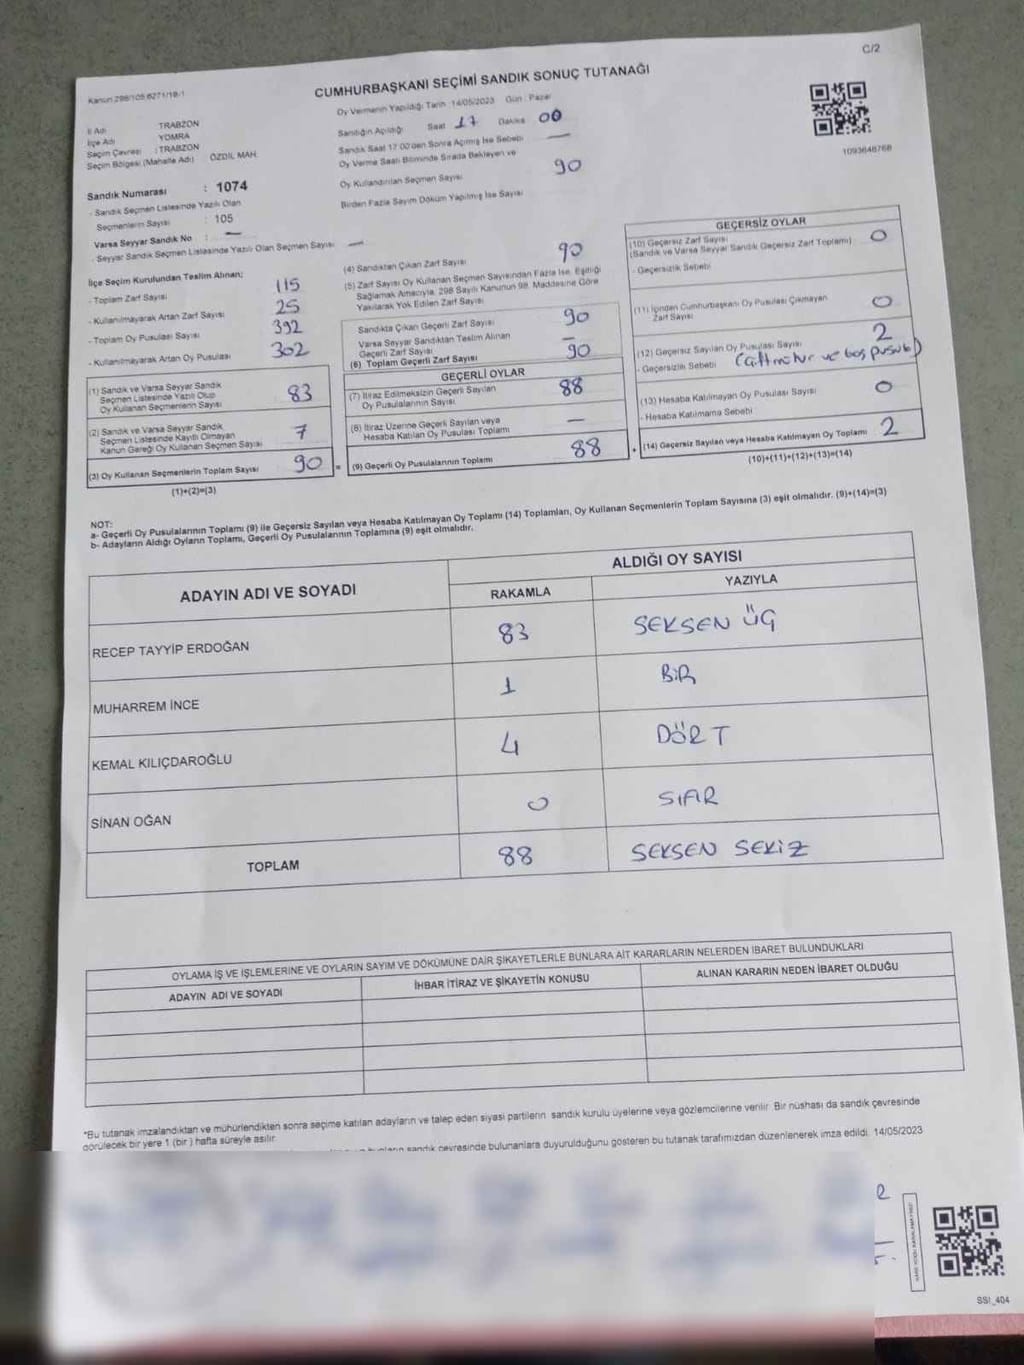 C/2
Kanun 298/105 6271/19/1
CUMHURBAŞKANI SEÇİMİ SANDIK SONUÇ TUTANAĞI
Oy Vermenin Yapıldığı Tarih 14/05/2023 Gün : Pazar
İl Adı TRABZON
İlçe Adı YOMRA
Seçim Çevresi : TRABZON
Seçim Bölgesi (Mahalle Adı) ÖZDİL MAH.
Sandığın Açıldığı Saat 17 Dakika 00
Sandık Saat 17:00'den Sonra Açılmış İse Sebebi —
Oy Verme Saati Bitiminde Sırada Bekleyen ve
Oy Kullandırılan Seçmen Sayısı 90
Birden Fazla Sayım Döküm Yapılmış İse Sayısı
1093648768
Sandık Numarası : 1074
- Sandık Seçmen Listesinde Yazılı Olan
Seçmenlerin Sayısı : 105
Varsa Seyyar Sandık No : —
- Seyyar Sandık Seçmen Listesinde Yazılı Olan Seçmen Sayısı —
İlçe Seçim Kurulundan Teslim Alınan;
- Toplam Zarf Sayısı 115
- Kullanılmayarak Artan Zarf Sayısı 25
- Toplam Oy Pusulası Sayısı 392
- Kullanılmayarak Artan Oy Pusulası 302
(1) Sandık ve Varsa Seyyar Sandık
Seçmen Listesinde Yazılı Olup
Oy Kullanan Seçmenlerin Sayısı 83
(2) Sandık ve Varsa Seyyar Sandık
Seçmen Listesinde Kayıtlı Olmayan
Kanun Gereği Oy Kullanan Seçmen Sayısı 7
(3) Oy Kullanan Seçmenlerin Toplam Sayısı 90 =
(1)+(2)=(3)
(4) Sandıktan Çıkan Zarf Sayısı 90
(5) Zarf Sayısı Oy Kullanan Seçmen Sayısından Fazla İse, Eşitliği
Sağlamak Amacıyla, 298 Sayılı Kanunun 98. Maddesine Göre
Yakılarak Yok Edilen Zarf Sayısı
Sandıkta Çıkan Geçerli Zarf Sayısı 90
Varsa Seyyar Sandıktan Teslim Alınan
Geçerli Zarf Sayısı —
(6) Toplam Geçerli Zarf Sayısı 90
GEÇERLİ OYLAR
(7) İtiraz Edilmeksizin Geçerli Sayılan
Oy Pusulalarının Sayısı 88
(8) İtiraz Üzerine Geçerli Sayılan veya
Hesaba Katılan Oy Pusulası Toplamı —
(9) Geçerli Oy Pusulalarının Toplamı 88 +
GEÇERSİZ OYLAR
(10) Geçersiz Zarf Sayısı
(Sandık ve Varsa Seyyar Sandık Geçersiz Zarf Toplamı) 0
- Geçersizlik Sebebi
(11) İçinden Cumhurbaşkanı Oy Pusulası Çıkmayan
Zarf Sayısı 0
(12) Geçersiz Sayılan Oy Pusulası Sayısı 2
- Geçersizlik Sebebi (Çift mühür ve boş pusula)
(13) Hesaba Katılmayan Oy Pusulası Sayısı 0
- Hesaba Katılmama Sebebi
(14) Geçersiz Sayılan veya Hesaba Katılmayan Oy Toplamı 2
(10)+(11)+(12)+(13)=(14)
NOT:
a- Geçerli Oy Pusulalarının Toplamı (9) ile Geçersiz Sayılan veya Hesaba Katılmayan Oy Toplamı (14) Toplamları, Oy Kullanan Seçmenlerin Toplam Sayısına (3) eşit olmalıdır. (9)+(14)=(3)
b- Adayların Aldığı Oyların Toplamı, Geçerli Oy Pusulalarının Toplamına (9) eşit olmalıdır.
ADAYIN ADI VE SOYADI ALDIĞI OY SAYISI
RAKAMLA YAZIYLA
RECEP TAYYİP ERDOĞAN 83 SEKSEN ÜÇ
MUHARREM İNCE 1 BİR
KEMAL KILIÇDAROĞLU 4 DÖRT
SİNAN OĞAN 0 SIFIR
TOPLAM 88 SEKSEN SEKİZ
OYLAMA İŞ VE İŞLEMLERİNE VE OYLARIN SAYIM VE DÖKÜMÜNE DAİR ŞİKAYETLERLE BUNLARA AİT KARARLARIN NELERDEN İBARET BULUNDUKLARI
ADAYIN ADI VE SOYADI İHBAR İTİRAZ VE ŞİKAYETİN KONUSU ALINAN KARARIN NEDEN İBARET OLDUĞU
*Bu tutanak imzalandıktan ve mühürlendikten sonra seçime katılan adayların ve talep eden siyasi partilerin sandık kurulu üyelerine veya gözlemcilerine verilir. Bir nüshası da sandık çevresinde
görülecek bir yere 1 (bir) hafta süreyle asılır.
sandık çevresinde bulunanlara duyurulduğunu gösteren bu tutanak tarafımızdan düzenlenerek imza edildi. 14/05/2023
SSI_404